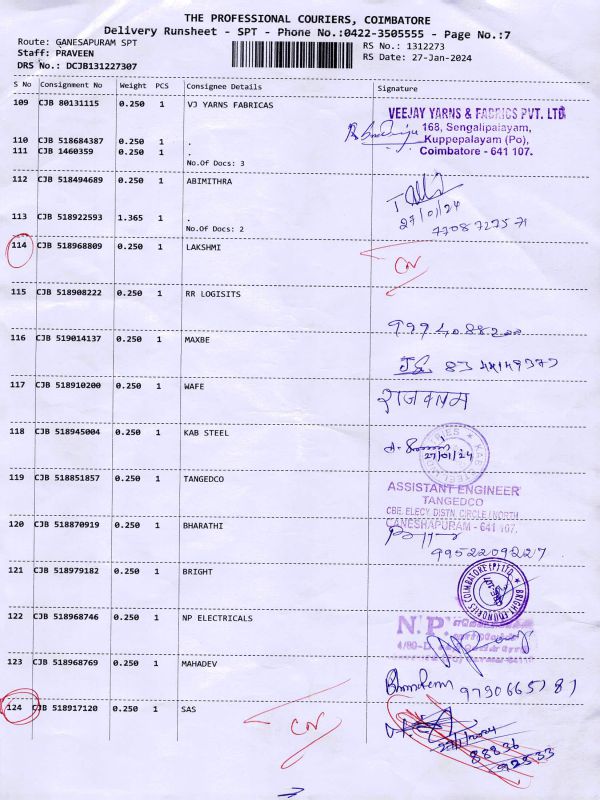 THE PROFESSIONAL COURIERS, COIMBATORE
Delivery Runsheet - SPT - Phone No.:0422-3505555 - Page No.:7
Route: GANESAPURAM SPT
RS No.: 1312273
Staff: PRAVEEN
RS Date: 27-Jan-2024
DRS No.: DCJB131227307
S No Consignment No Weight PCS Consignee Details Signature
109 CJB 80131115 0.250 1 VJ YARNS FABRICAS
VEEJAY YARNS & FABRICS PVT. LTD
168, Sengalipalayam,
Kuppepalayam (Po),
Coimbatore - 641 107.
110 CJB 518684387 0.250 1 .
111 CJB 1460359 0.250 1 .
No.Of Docs: 3
112 CJB 518494689 0.250 1 ABIMITHRA
27/01/24
7708727571
113 CJB 518922593 1.365 1 .
No.Of Docs: 2
114 CJB 518968809 0.250 1 LAKSHMI
CN
115 CJB 518908222 0.250 1 RR LOGISITS
116 CJB 519014137 0.250 1 MAXBE
117 CJB 518910200 0.250 1 WAFE
118 CJB 518945004 0.250 1 KAB STEEL
27/01/24
119 CJB 518851857 0.250 1 TANGEDCO
ASSISTANT ENGINEER
TANGEDCO
CBE. ELECY. DISTN. CIRCLE / NORTH
GANESHAPURAM - 641 107.
120 CJB 518870919 0.250 1 BHARATHI
9952209227
121 CJB 518979182 0.250 1 BRIGHT
122 CJB 518968746 0.250 1 NP ELECTRICALS
N.P.
123 CJB 518968769 0.250 1 MAHADEV
9790665781
124 CJB 518917120 0.250 1 SAS
CN
88836
92533